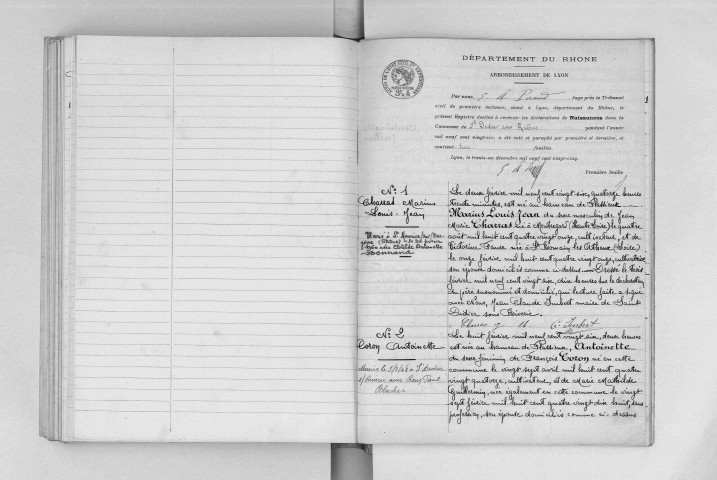 DÉPARTEMENT DU RHONE
ARRONDISSEMENT DE LYON
Par nous, Juge près le Tribunal
civil de première instance, séant à Lyon, département du Rhône, le
présent Registre destiné à recevoir les déclarations de Naissances dans la
Commune de St Didier sous Riverie pendant l'année
mil neuf cent vingt-six, a été coté et paraphé par première et dernière, et
contient feuilles.
Lyon, le trente-un décembre mil neuf cent vingt-cinq.
Première feuille
1
N° 1
Charras Marius
Louis-Jean
Marié à St
le 26
avec Clotilde Antoinette
Bonnand
Le deux février mil neuf cent vingt six, quatorze heures
trente minutes, est né au hameau de
Marius Louis Jean du sexe masculin de Jean
Marie Charras né à (Haute Loire) le quatre
août mil huit cent quatre vingt onze, cultivateur, et de
Victorine née à St Romain les Atheux (Loire)
le onze février mil huit cent quatre vingt onze, cultivatrice,
son épouse domiciliés comme ci-dessus - Dressé le trois
février mil neuf cent vingt six, dix heures sur la déclaration
du père susnommé et domicilié, qui lecture faite a signé
avec Nous, Jean Claude Imbert maire de Saint
Didier sous Riverie.
Charras J. M. C. Imbert
N° 2
Coron Antoinette
Mariée le 5/1/46 à St Didier
s/Riverie avec Paul
Blacher
Le huit février mil neuf cent vingt six, douze heures
est née au hameau de Antoinette
du sexe féminin de François Coron né en cette
commune le vingt sept avril mil huit cent quatre
vingt quatorze, cultivateur, et de Marie Mathilde
Guillermin, née également en cette commune le vingt
sept février mil huit cent quatre vingt dix huit, sans
profession, son épouse domiciliés comme ci-dessus